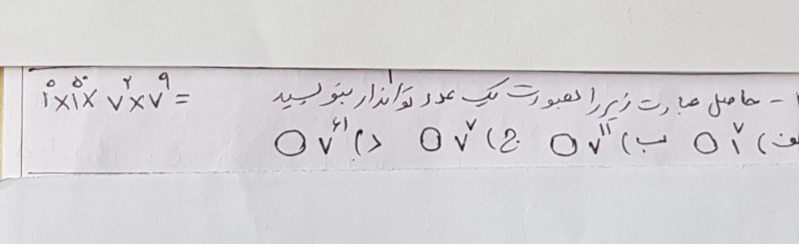 ۱- حاصل عبارت زیر را بصورت یک عدد تواندار بنویسید ۱^۵ × ۱^۵۰ × ۷^۲ × ۷^۹ =
الف) ۱^۷ ○ ب) ۷^۱۱ ○ ج) ۷^۷ ○ د) ۷^۶۱ ○